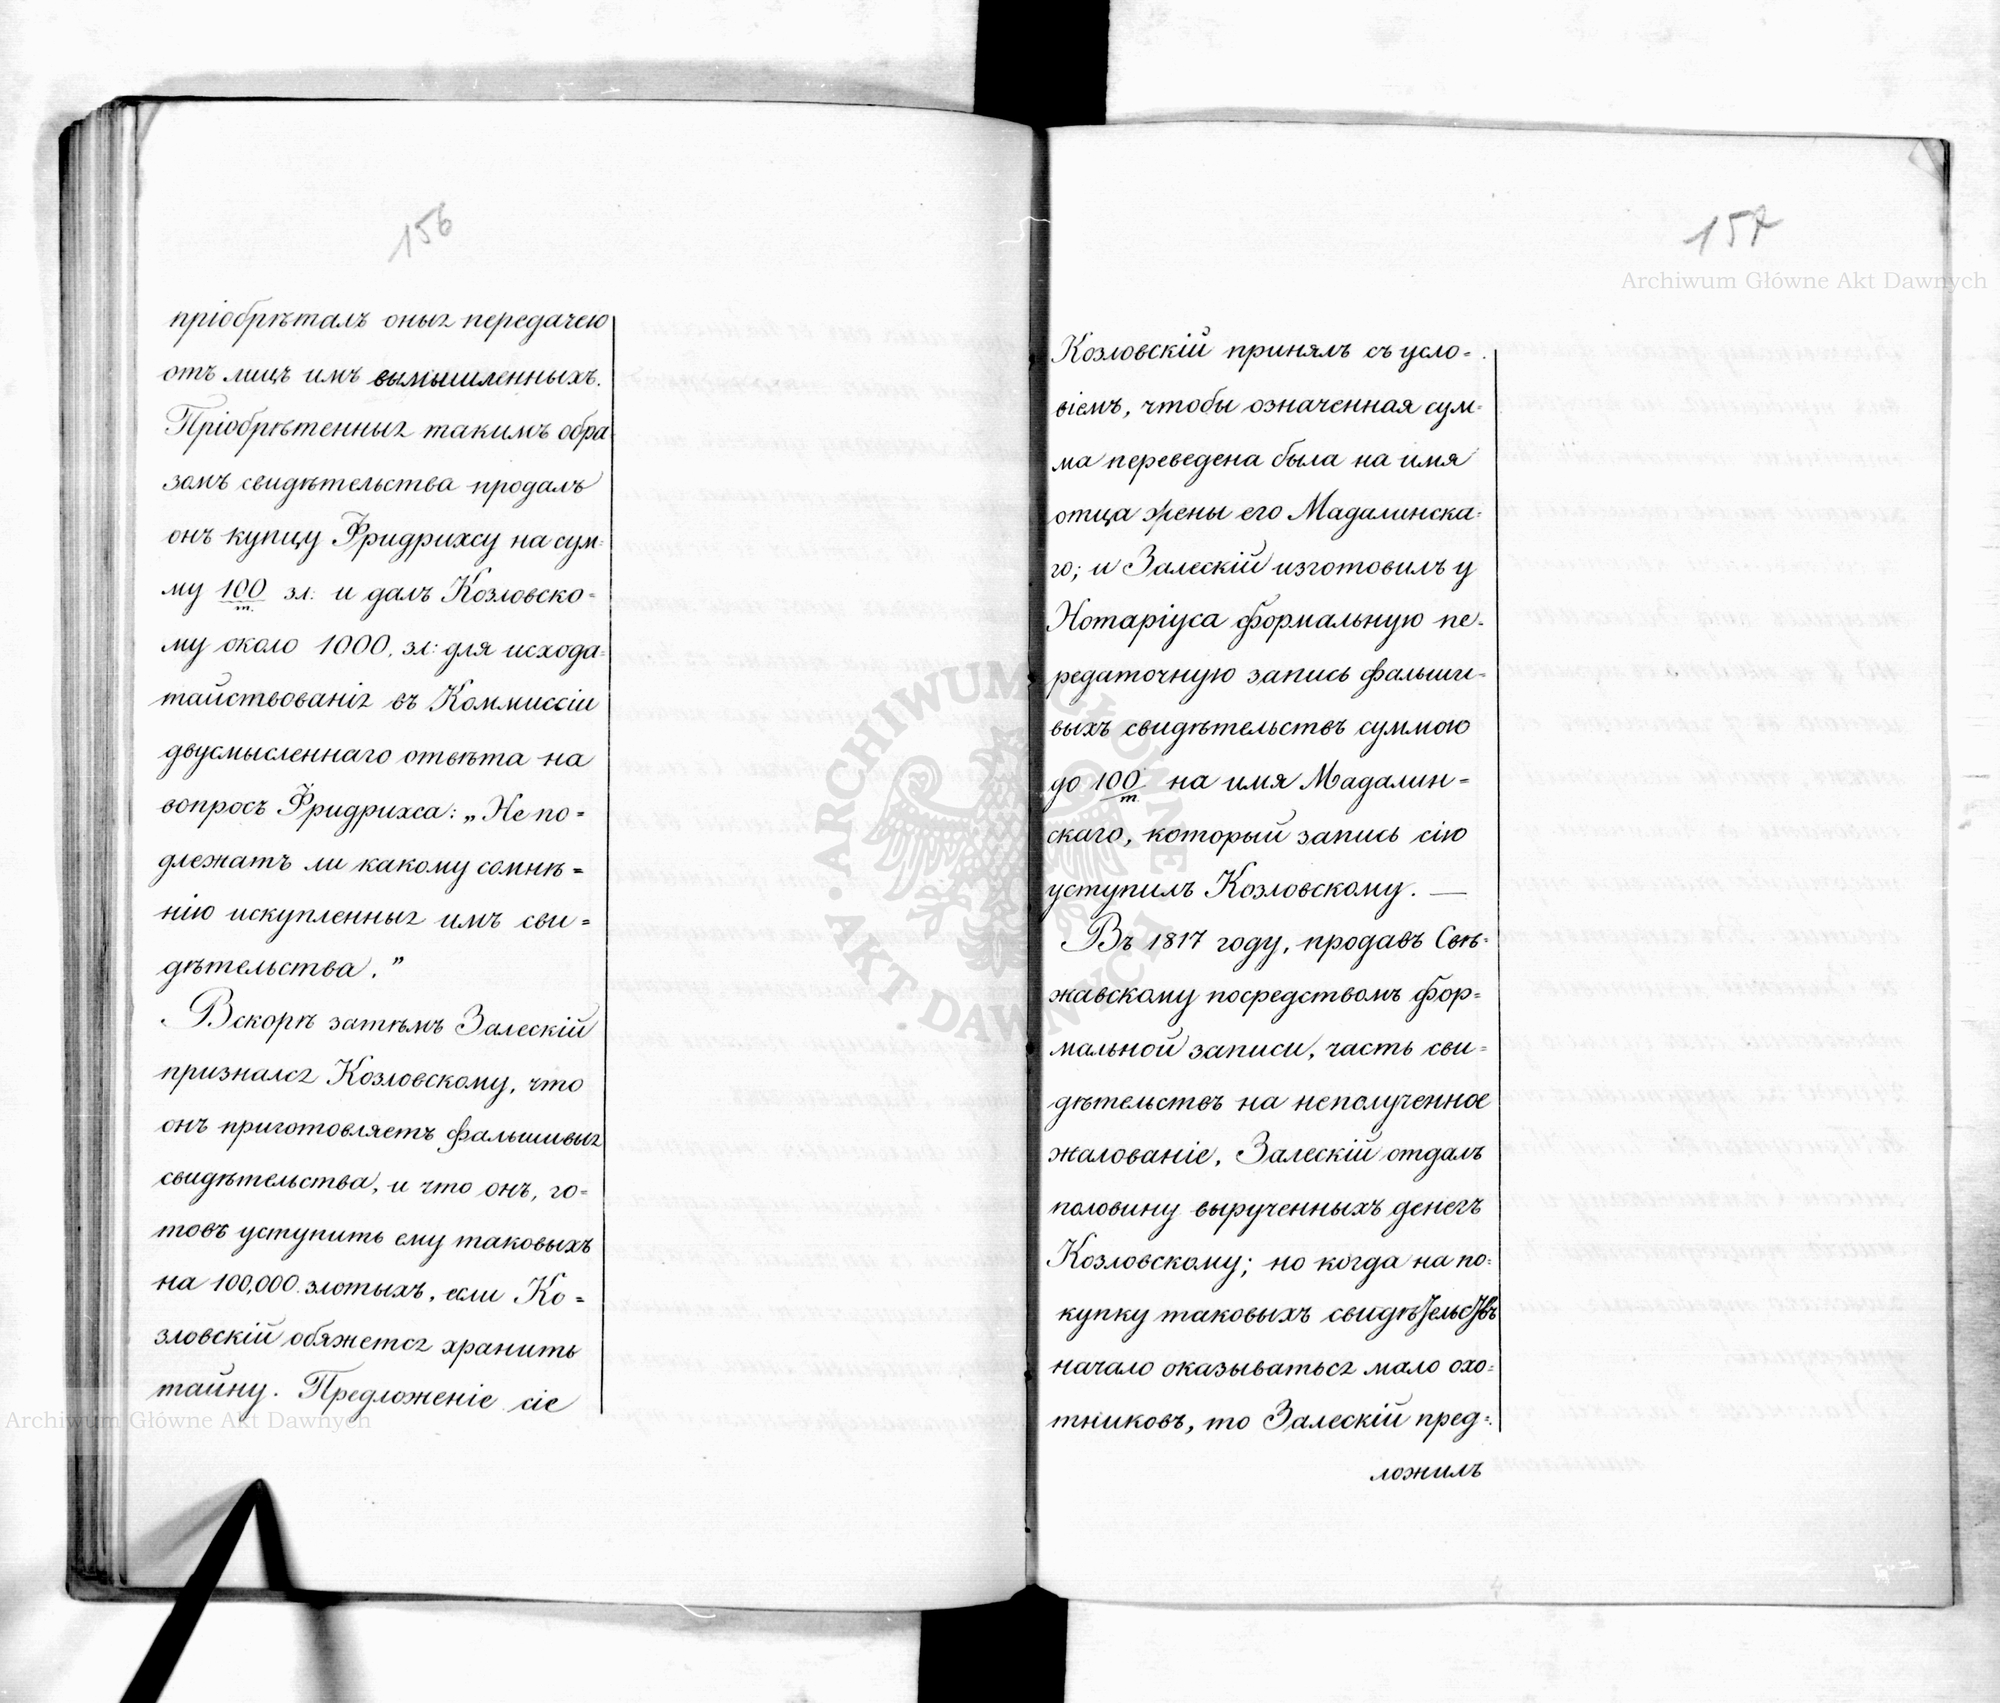 156
пріобрѣталъ оныя передачею
отъ лицъ имъ вымышленныхъ.
Пріобрѣтенныя такимъ обра
зомъ свидѣтельства продалъ
онъ купцу Фридрихсу на сум-
му 100/m. зл: и далъ Козловско-
му около 1000. зл: для исхода-
тайствованія въ Коммиссіи
двусмысленнаго отвѣта на
вопросъ Фридрихса: „Не по=
длежатъ ли какому сомнѣ=
нію искупленныя имъ сви=
дѣтельства."
Вскорѣ затѣмъ Залескій
признался Козловскому, что
онъ приготовляетъ фальшивыя
свидѣтельства, и что онъ, го=
товъ уступить ему таковыхъ
на 100,000. злотыхъ, если Ко=
зловскій обяжется хранить
тайну. Предложеніе сіе
157
Козловскій принялъ съ усло=
віемъ, чтобы означенная сум-
ма переведена была на имя
отца жены его Мадалинска-
го; и Залескій изготовилъ у
Нотаріуса формальную пе-
редаточную запись фальши-
выхъ свидѣтельствъ суммою
до 100/m. на имя Мадалин=
скаго, который запись сію
уступилъ Козловскому. —
Въ 1817 году, продавъ Свѣ-
жавскому посредствомъ фор=
мальной записи, часть сви=
дѣтельствъ на неполученное
жалованіе, Залескій отдалъ
половину вырученныхъ денегъ
Козловскому; но когда на по-
купку таковыхъ свидѣтельствъ
начало оказываться мало охо-
тниковъ, то Залескій пред=
ложилъ
Archiwum Główne Akt Dawnych
Archiwum Główne Akt Dawnych
ARCHIWUM GŁÓWNE · AKT · DAWNYCH